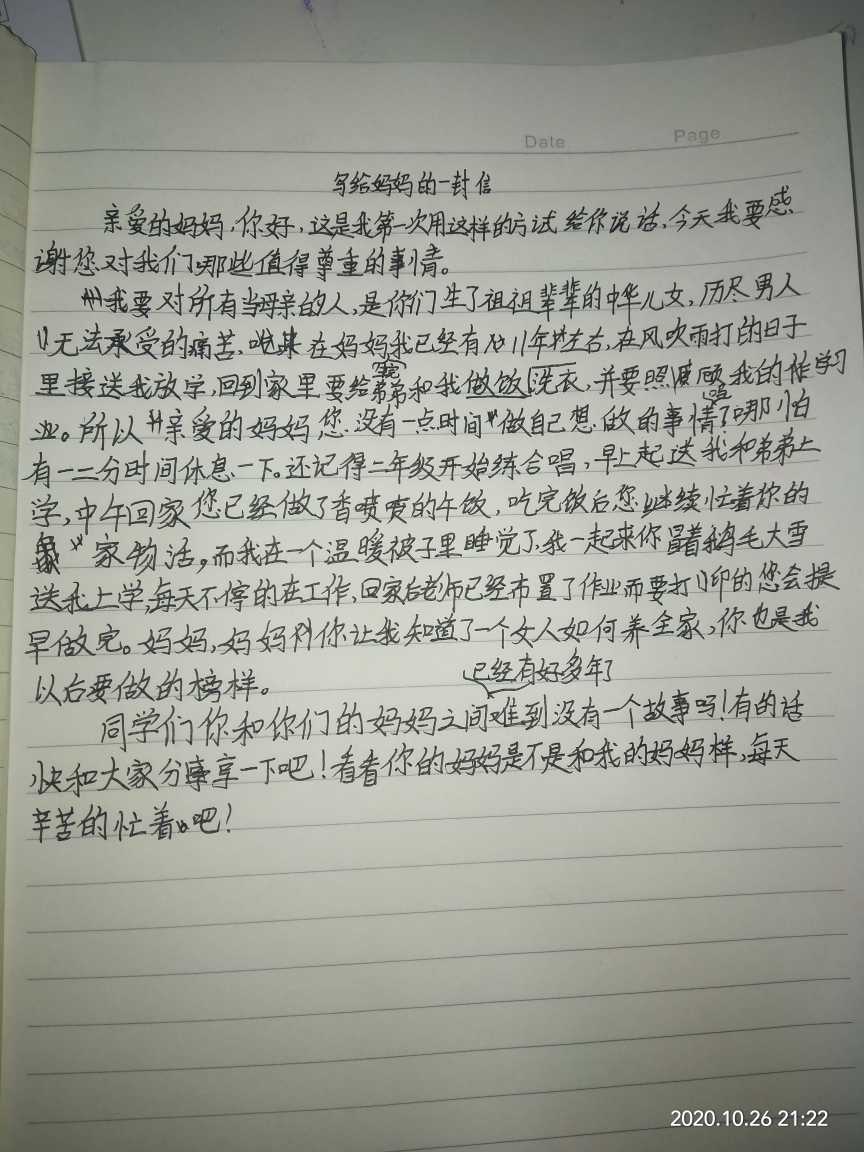 Date Page
写给妈妈的一封信
亲爱的妈妈,你好,这是我第一次用这样的方试给你说话,今天我要感
谢您对我们哪些值得尊重的事情。
我要对所有当母亲的人,是你们生了祖祖辈辈的中华儿女,历尽男人
无法承受的痛苦,在妈妈我已经有11年左右,在风吹雨打的日子
里接送我放学,回到家里要给弟弟和我做饭洗衣,并要照顾我的学习
业。所以亲爱的妈妈您没有一点时间做自己想做的事情了哪怕
有一二分时间休息一下。还记得二年级开始练合唱,早上起送我和弟弟上
学,中午回家您已经做了香喷喷的午饭,吃完饭后您继续忙着你的
家物活,而我在一个温暖被子里睡觉了,我一起来你冒着鹅毛大雪
送我上学,每天不停的在工作,回家后老师已经布置了作业而要打印的您会提
早做完。妈妈,妈妈你让我知道了一个女人如何养全家,你也是我
以后要做的榜样。
已经有好多年了
同学们你和你们的妈妈之间难到没有一个故事吗!有的话
快和大家分享一下吧!看看你的妈妈是不是和我的妈妈样,每天
辛苦的忙着吧!
2020.10.26 21:22